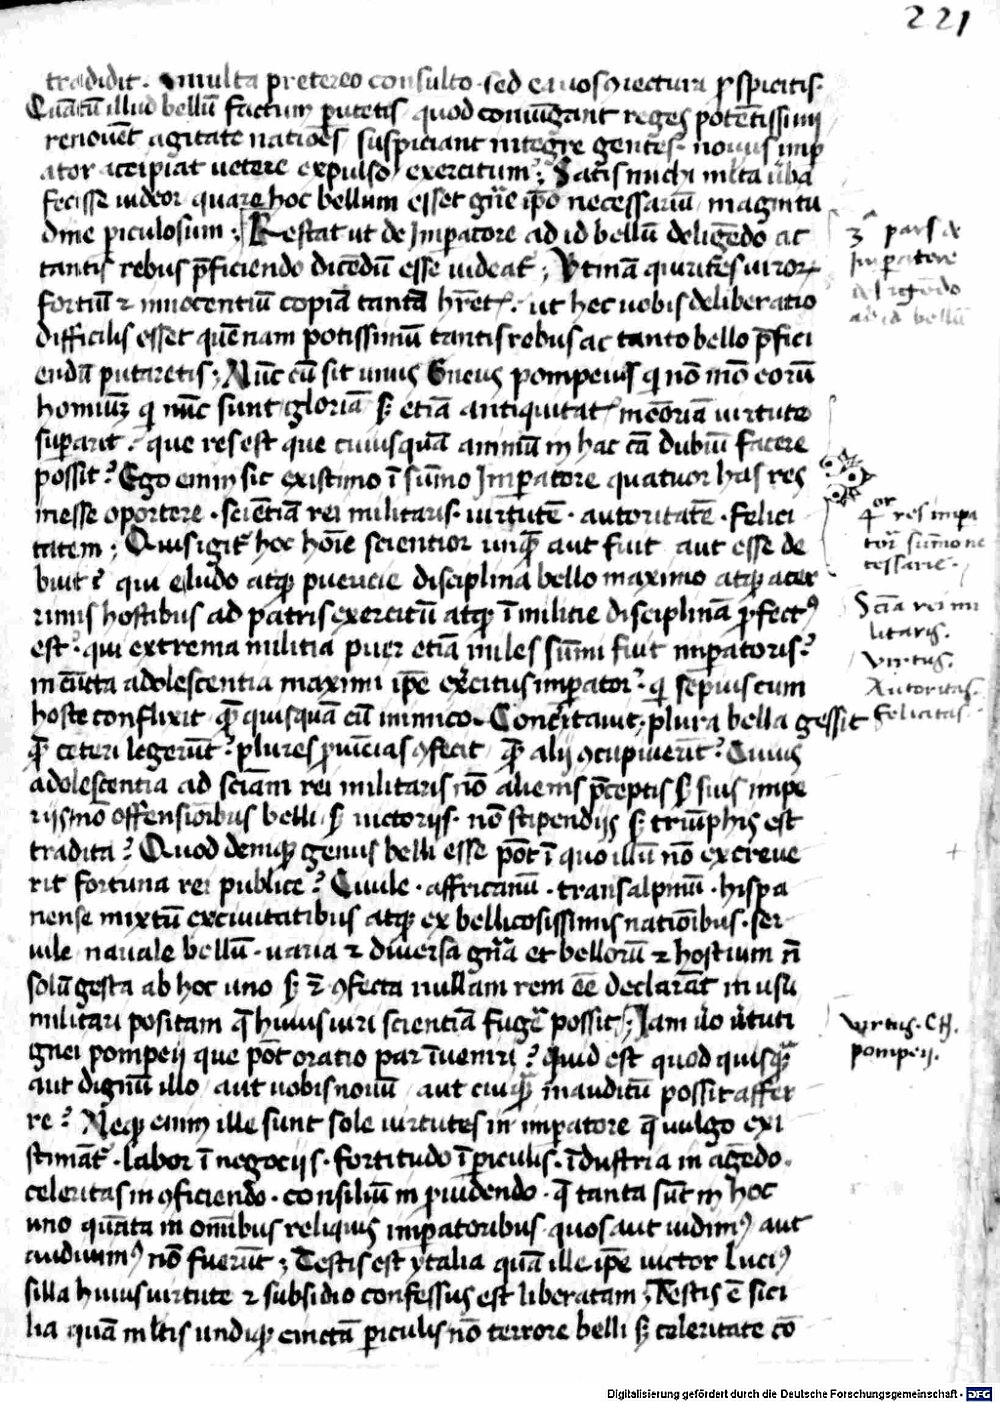 221
tradidit. multa pretereo consulto. sed ea vos ꝯiectura ꝑspicitis.
Quātū illud bellū factum putetis quod coniūgant reges potētissimi
renovēt agitate natiōes suspiciant integre gentes. novus imꝑ
ator accipiat vetere expulso exercitum? Satis michi mlta ūba
fecisse videor quare hoc bellum esset gn̄e ip̄o necessariū magnitu
dine periculosum; Restat ut de Imꝑatore ad id bellū deligēdo ac
tantis rebus p̄ficiendo dicēdū esse videat᷑; Vtinā quirites viroꝝ
fortiū ⁊ innocentiū copiā tantā hr̄et᷑. ut hec vobis deliberatio
difficilis esset quēnam potissimū tantis rebus ac tanto bello p̄fici
endū putaretis; Nūc cū sit unus Gneus pompeius q̇ nō mō eorū
hominū q̇ nūc sunt gloriā s̄ etiā antiquitat᷑ memoriā virtute
suꝑarit. que res est que cuiusquā animū in hac cā dubiū facere
possit? Ego enim sic existimo ī sūmo Imꝑatore quatuor has res
inesse oportere. sciētiā rei militaris. virtutē. autoritatē. felici
tatem; Quis igit᷑ hoc hoīe scientior unq̄ aut fuit aut esse de
buit? qui e ludo atqꝫ puericie disciplina bello maximo atqꝫ acer
rimis hostibus ad patris exercitū atqꝫ ī militie disciplinā ꝓfectꝰ
est? qui extrema militia puer etiā miles sūmi fuit imꝑatoris?
in eūcta adolescentia maximi ip̄e exc̄itus imꝑator? q̇ sepius cum
hoste conflixit q̄ quisquā cū inimico Concertavit. plura bella gessit
q̄ ceteri legerūt? plures ꝓvīcias ꝯfecit q̄ alij ꝯcupiverūt? Cuius
adolescentia ad sciam rei militaris nō alienis p̄ceptis s̄ suis impe
rijs nō offensionibus belli s̄ victorijs. nō stipendijs s̄ triūphis est
tradita? Quod deniqꝫ genus belli esse pōt ī quo illū nō exercue
rit fortuna rei publice? Civile. affricanū. transalpinū. hispa
nense mixtū ex civitatibus atqꝫ ex bellicosissimis natiōibus. ser
vile navale bellū. varia ⁊ diversa gn̄a et bellorū ⁊ hostium n̄
solū gesta ab hoc uno s̄ ⁊ ꝯfecta nullam rem eē declarāt in usu
militari positam q̄ huius viri scientiā fugē possit; Iam ūo v̄tuti
ignei pompeij que pōt oratio par īveniri? Quid est quod quisq̄
aut dignū illo aut vobis novū aut cuiq̄ inauditū possit affer
re? Neqꝫ enim ille sunt sole virtutes in imꝑatore q̄ vulgo exi
stimāt᷑. labor ī negocijs. fortitudo ī ꝑiculis. īdustria in agēdo.
celeritas in ꝯficiendo. consiliū in ꝓvidendo. q̄ tanta sūt in hoc
uno quāta in omībus reliquis imꝑatoribus quos aut vidimꝰ aut
audivimꝰ nō fuerūt; Testis est ytalia quā ille ip̄e victor Luciꝰ
silla huius virtute ⁊ subsidio confessus est liberatam; Testis ē sici
lia quā mltis undiqꝫ cinctā ꝑiculis nō terrore belli s̄ celeritate cō
3ᵃ pars de
Imꝑatore
deligēdo
ad id bellū
4or res imꝑa
tori sūmo ne
cessarie.
Scīa rei mi
litaris.
Virtus.
Autoritas.
felicitas.
virtus. CN.
pompeij.
Digitalisierung gefördert durch die Deutsche Forschungsgemeinschaft - DFG